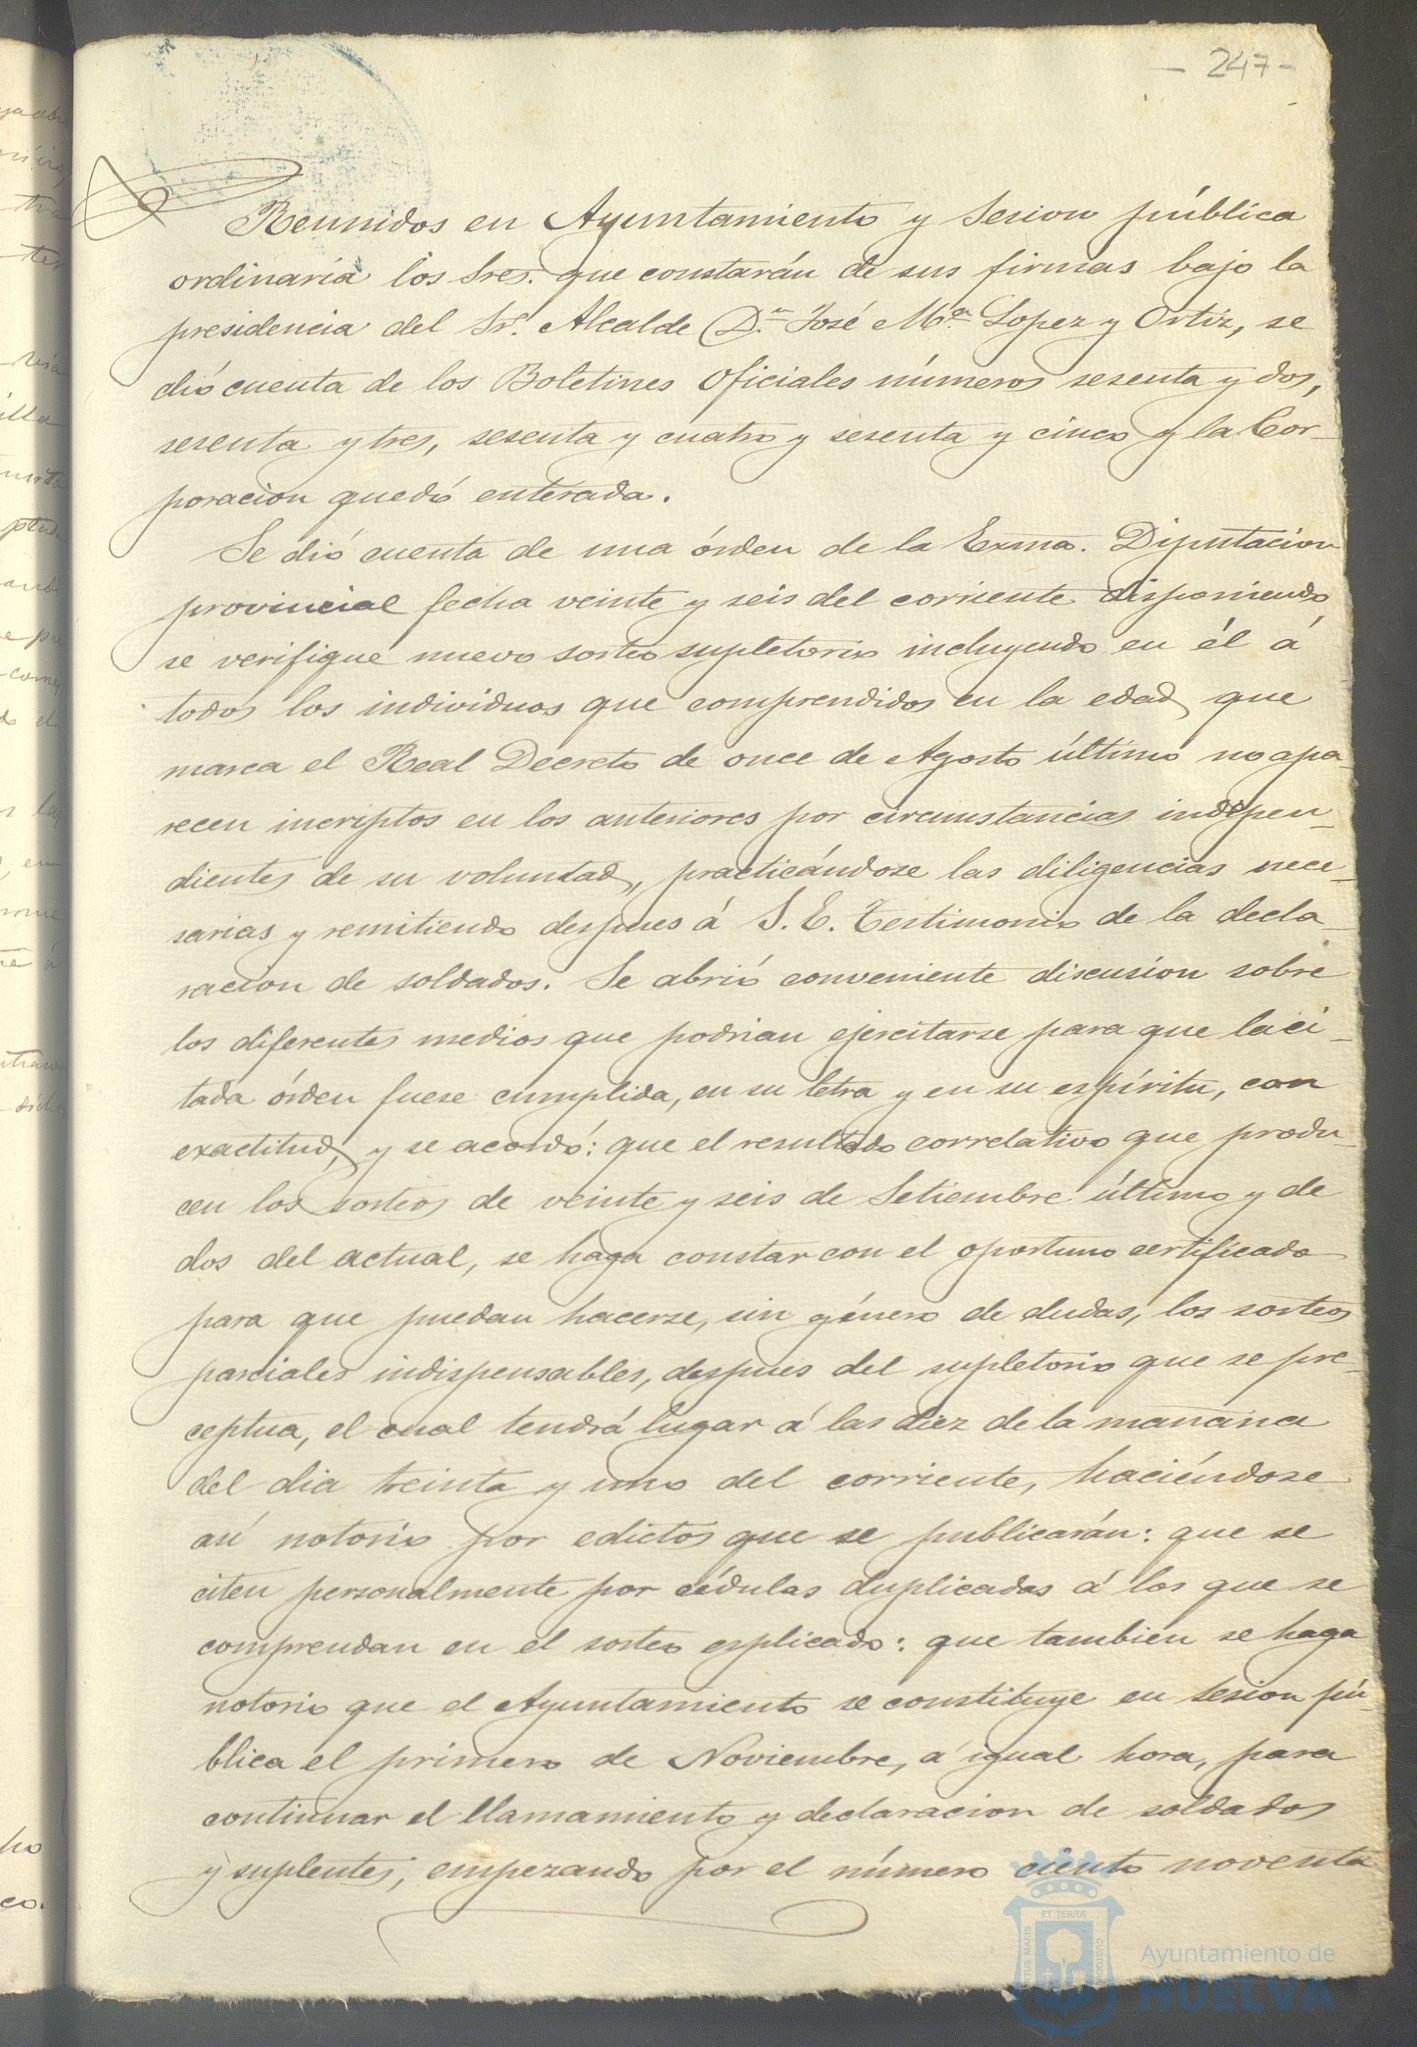 - 247 -
Reunidos en Ayuntamiento y Sesion pública
ordinaria los Sres. que constarán de sus firmas bajo la
presidencia del Sr. Alcalde D.n José M.a Lopez y Ortiz, se
dió cuenta de los Boletines Oficiales números sesenta y dos,
sesenta y tres, sesenta y cuatro y sesenta y cinco y la Cor-
poracion quedó enterada.
Se dió cuenta de una órden de la Exma. Diputacion
provincial fecha veinte y seis del corriente disponiendo
se verifique nuevo sorteo supletorio incluyendo en él á
todos los individuos que comprendidos en la edad que
marca el Real Decreto de once de Agosto último no apa-
recen incriptos en los anteriores por circunstancias indepen-
dientes de su voluntad, practicándose las diligencias nece-
sarias y remitiendo despues á S. E. Testimonio de la decla-
racion de soldados. Se abrió conveniente discusion sobre
los diferentes medios que podrian ejercitarse para que la ci-
tada órden fuese cumplida, en su letra y en su espíritu, con
exactitud, y se acordó: que el resultado correlativo que produ-
cen los sorteos de veinte y seis de Setiembre último y de
dos del actual, se haga constar con el oportuno certificado
para que puedan hacerse, sin género de dudas, los sorteos
parciales indispensables, despues del supletorio que se pre-
ceptua, el cual tendrá lugar á las diez de la mañana
del dia treinta y uno del corriente, haciéndose
así notorio por edictos que se publicarán: que se
citen personalmente por cédulas duplicadas á los que se
comprendan en el sorteo esplicado: que tambien se haga
notorio que el Ayuntamiento se constituye en sesion pú-
blica el primero de Noviembre, á igual hora, para
continuar el llamamiento y declaracion de soldados
y suplentes, empezando por el número ciento noventa
ET TERRÆ
CUSTODIA
Ayuntamiento de
HUELVA